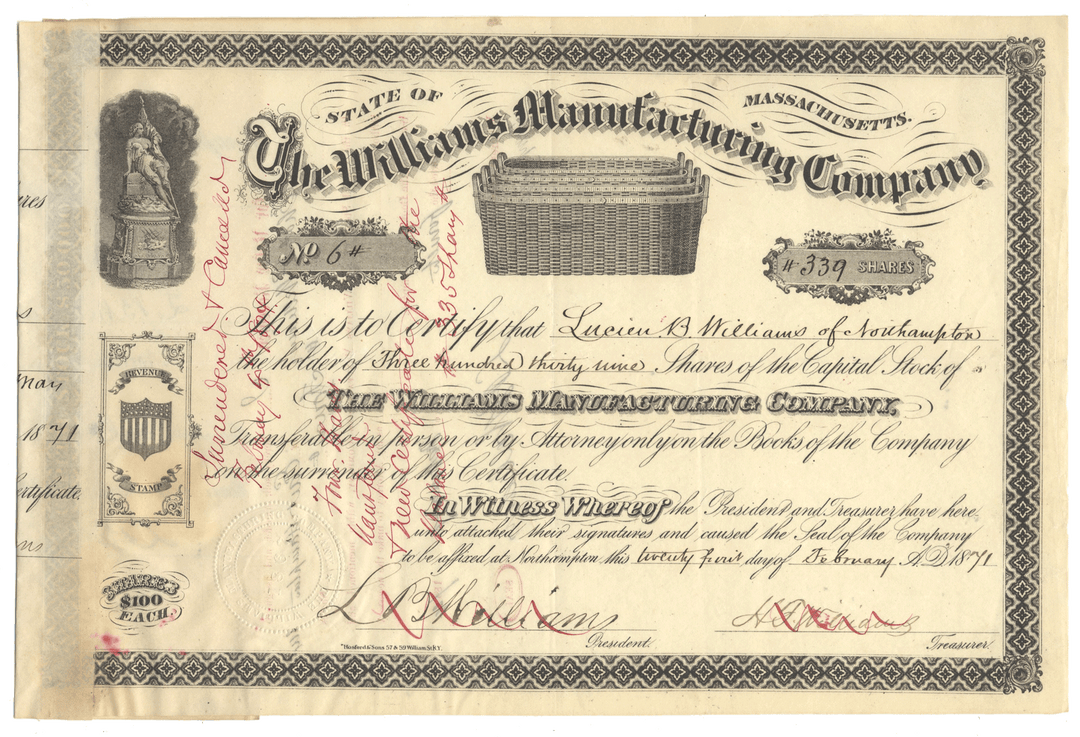 STATE OF MASSACHUSETTS.
The Williams Manufacturing Company
No 6 #
# 339 SHARES
This is to Certify that Lucien B Williams of Northampton
the holder of Three hundred thirty nine Shares of the Capital Stock of
THE WILLIAMS MANUFACTURING COMPANY.
Transferable in person or by Attorney only on the Books of the Company
on the surrender of this Certificate.
In Witness Whereof the President and Treasurer have here
unto attached their signatures and caused the Seal of the Company
to be affixed at Northampton this twenty first day of February A.D. 1871
L B Williams
President.
Treasurer.
Hosford & Sons 57 & 59 William St. N.Y.
REVENUE
STAMP
SHARES
$100
EACH
Surrendered & Canceled
res
s
may
1871
ertificate.
ns